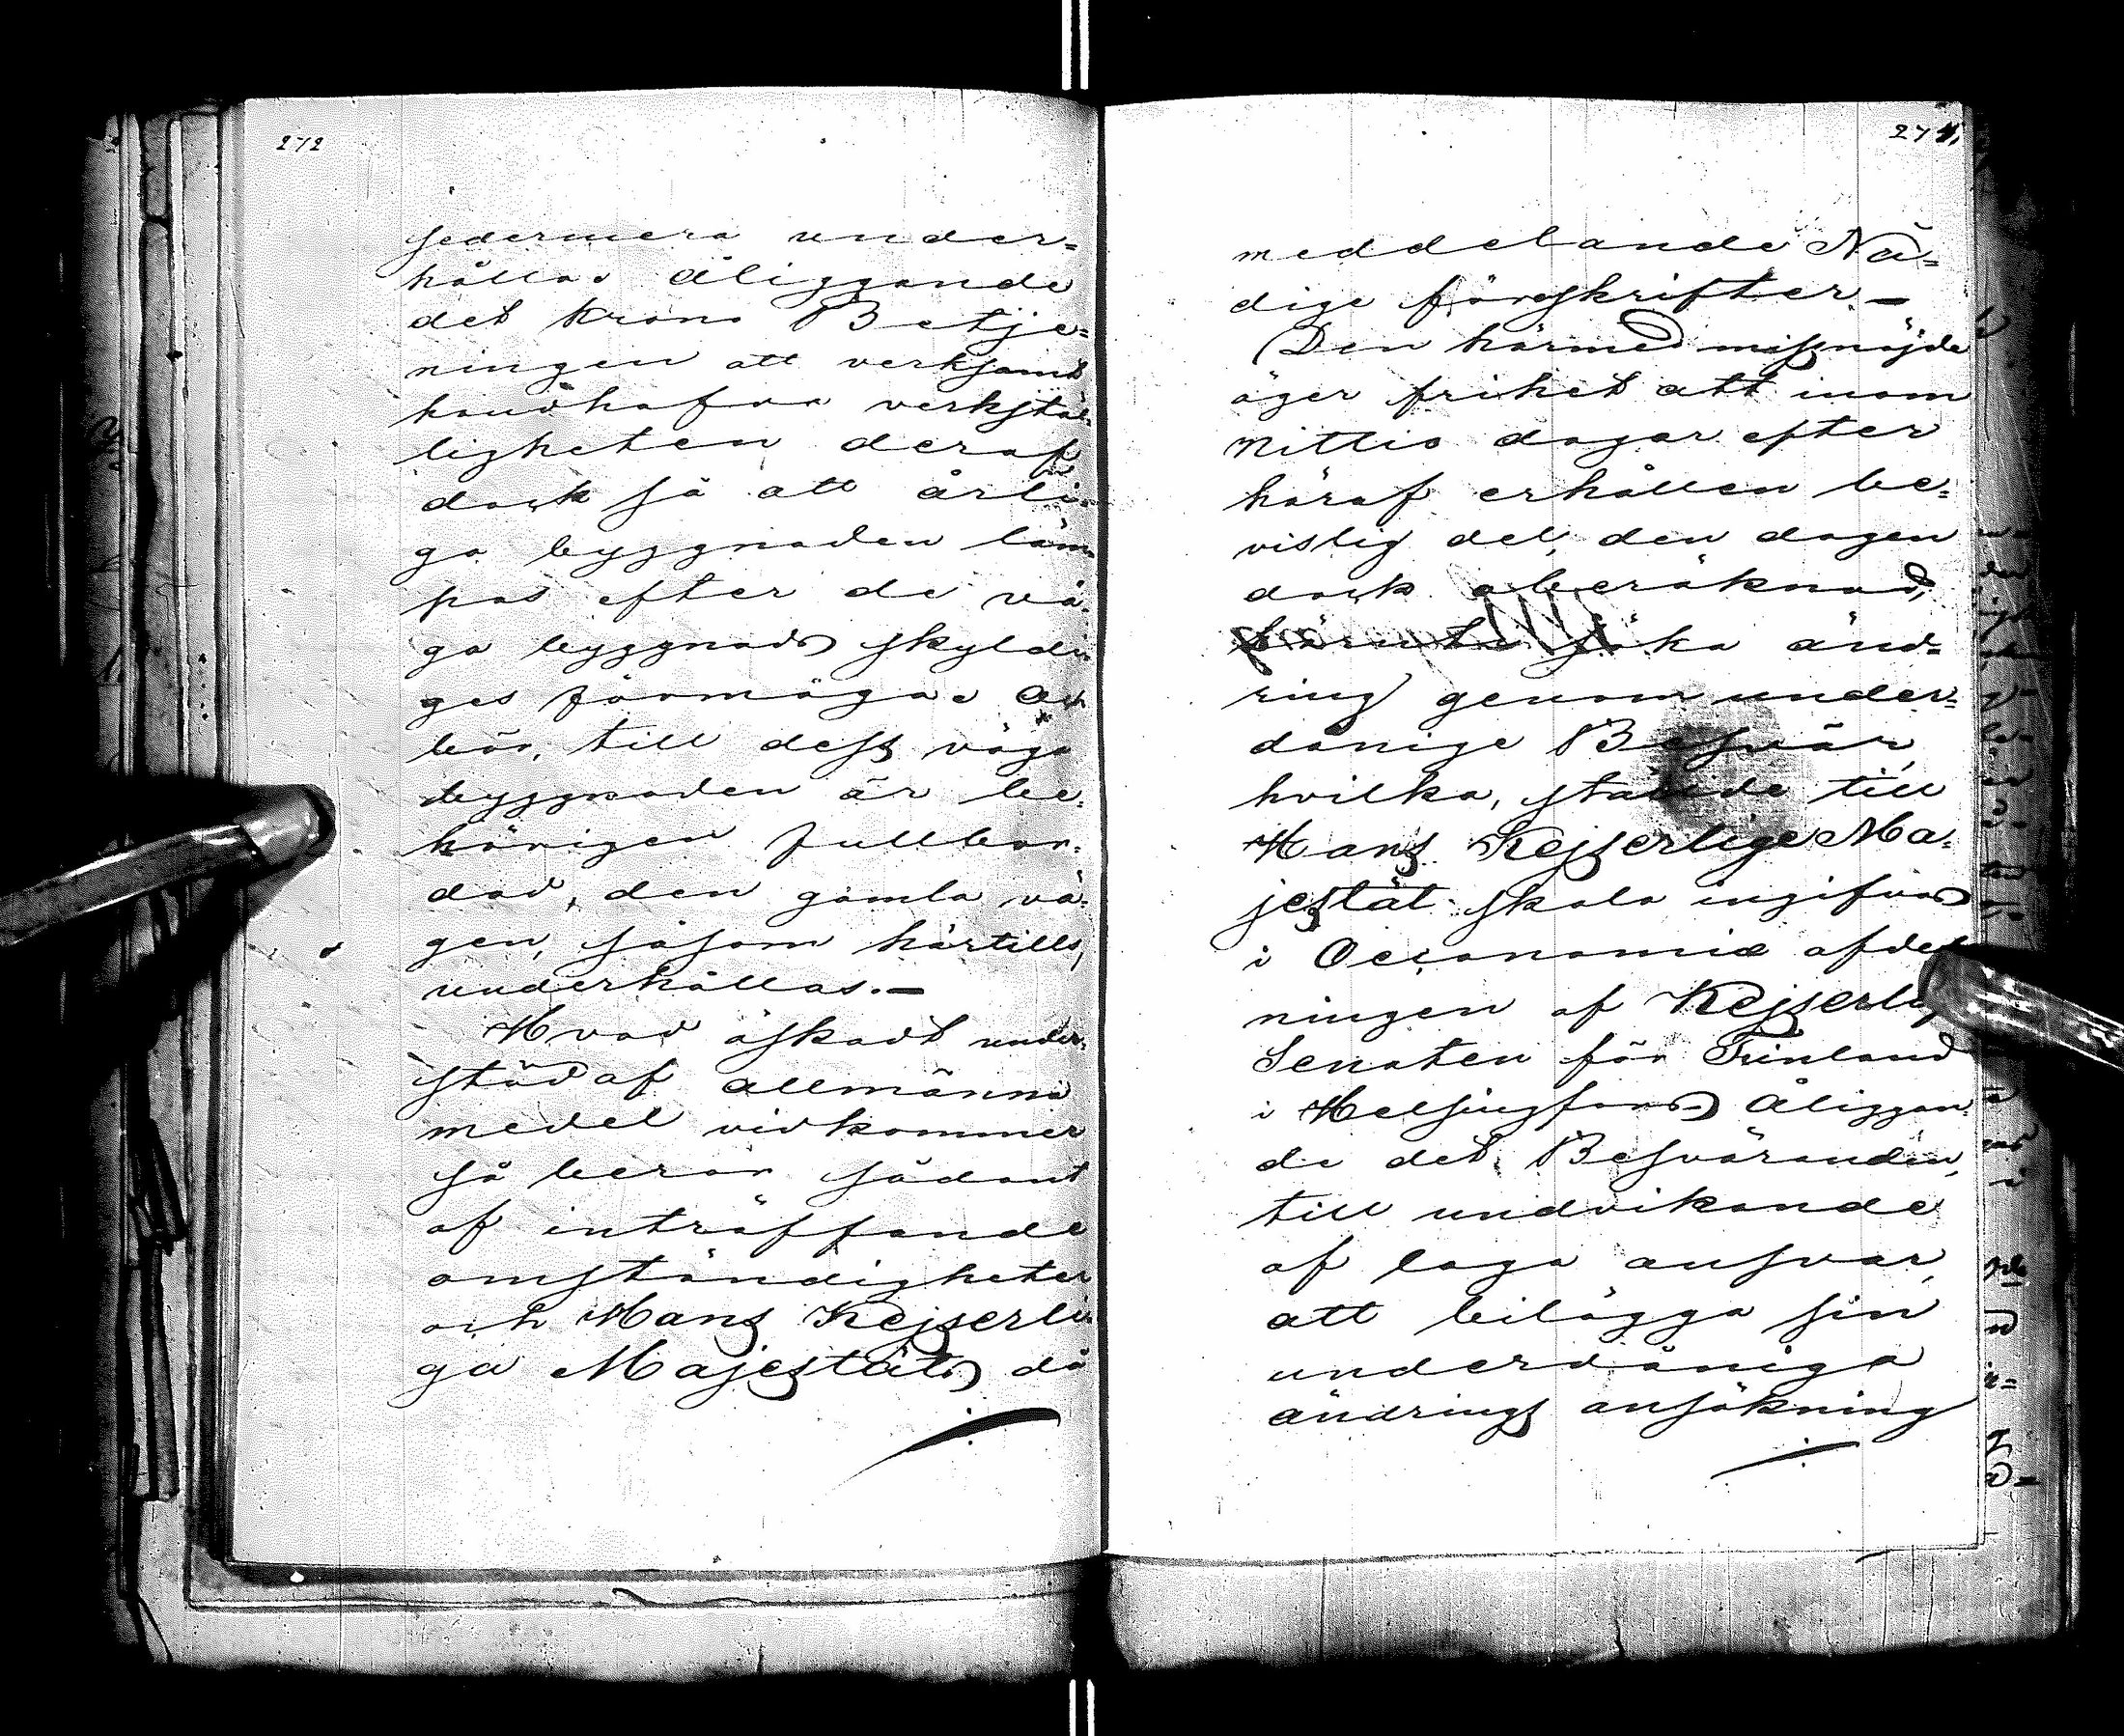 272
sedermera under-
hållas åliggande
det Krono Betje-
ningen att verksamt
handhafva verkstäl-
ligheten deraf
dock så att årli-
ga byggnaden läm-
pas efter de vä-
ga byggnads skyldi-
ges förmåga o ar-
bör, till dess väga
byggnaden är be-
hörigen fullbor-
dad, den gamla vä-
gen, såsom härtills,
underhållas.—
Hvad äskadt under-
stöd af allmänna
medel vidkommer
så beror sådant
af inträffande
omständigheter
och Hans Kejserli-
ga Majestäts då
271,
meddelande Nå-
dige föreskrifter—
Den härmed missnöjde
äger frihet att inom
Nittio dagar efter
häraf erhållen be-
vislig del, den dagen
dock oberäknad,
söka änd-
ring genom under-
dånige Besvär,
hvilka, stälde till
Hans Kejserlige Ma-
jestät skola ingifvas
i Oeconomie afdel
ningen af Kejserlig
Senaten för Finland
i Helsingfors åliggan-
de det Besväranden,
till undvikande
af laga ansvar,
att bilägga sin
underdåniga
ändrings ansökning